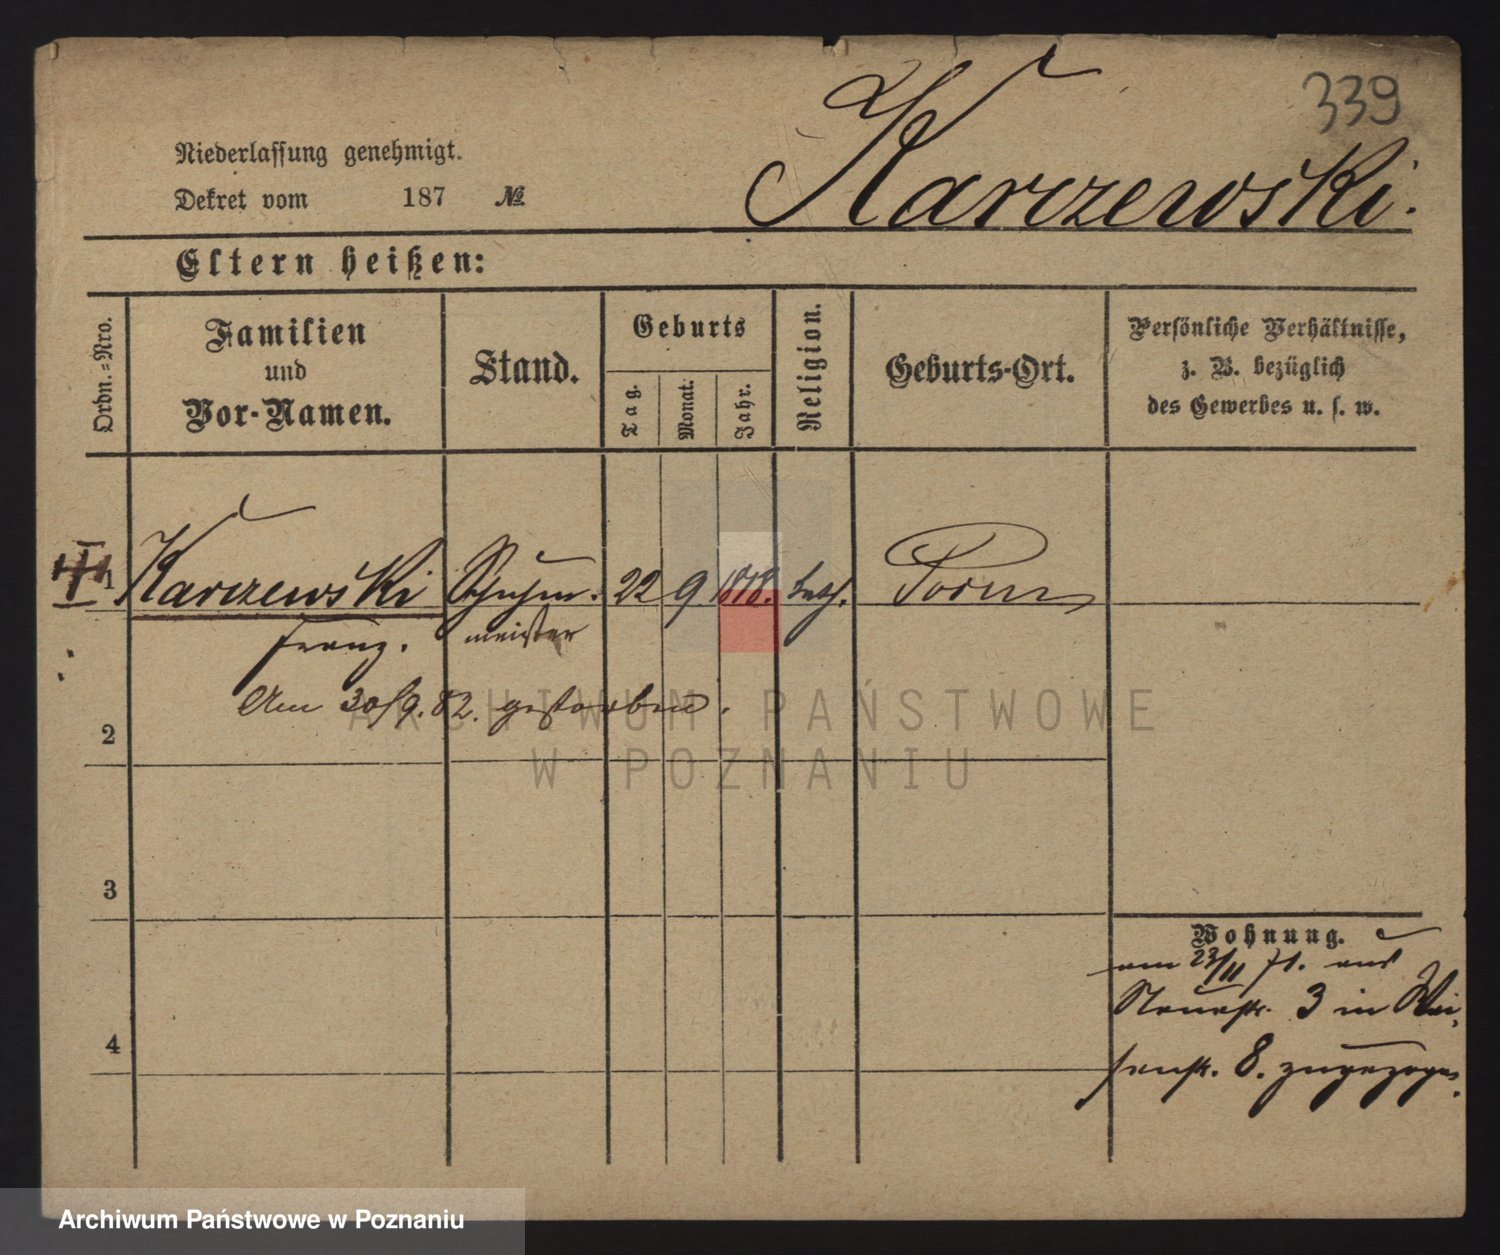 339
Karczewski.
Niederlassung genehmigt.
Dekret vom 187 №
Eltern heißen:
Ordn.-Nro.
Familien
und
Vor-Namen.
Stand.
Geburts
Tag.
Monat.
Jahr.
Religion.
Geburts-Ort.
Persönliche Verhältnisse,
z. B. bezüglich
des Gewerbes u. s. w.
1 Karczewski Schuhm. 22 9 1818. kath. Posen
Franz. meister
Am 30/9. 82. gestorben.
2
3
4
Wohnung.
am 23/11 71. aus
3 in Wai,
senstr. 8. zugezogen.
ARCHIWUM PAŃSTWOWE
W POZNANIU
Archiwum Państwowe w Poznaniu